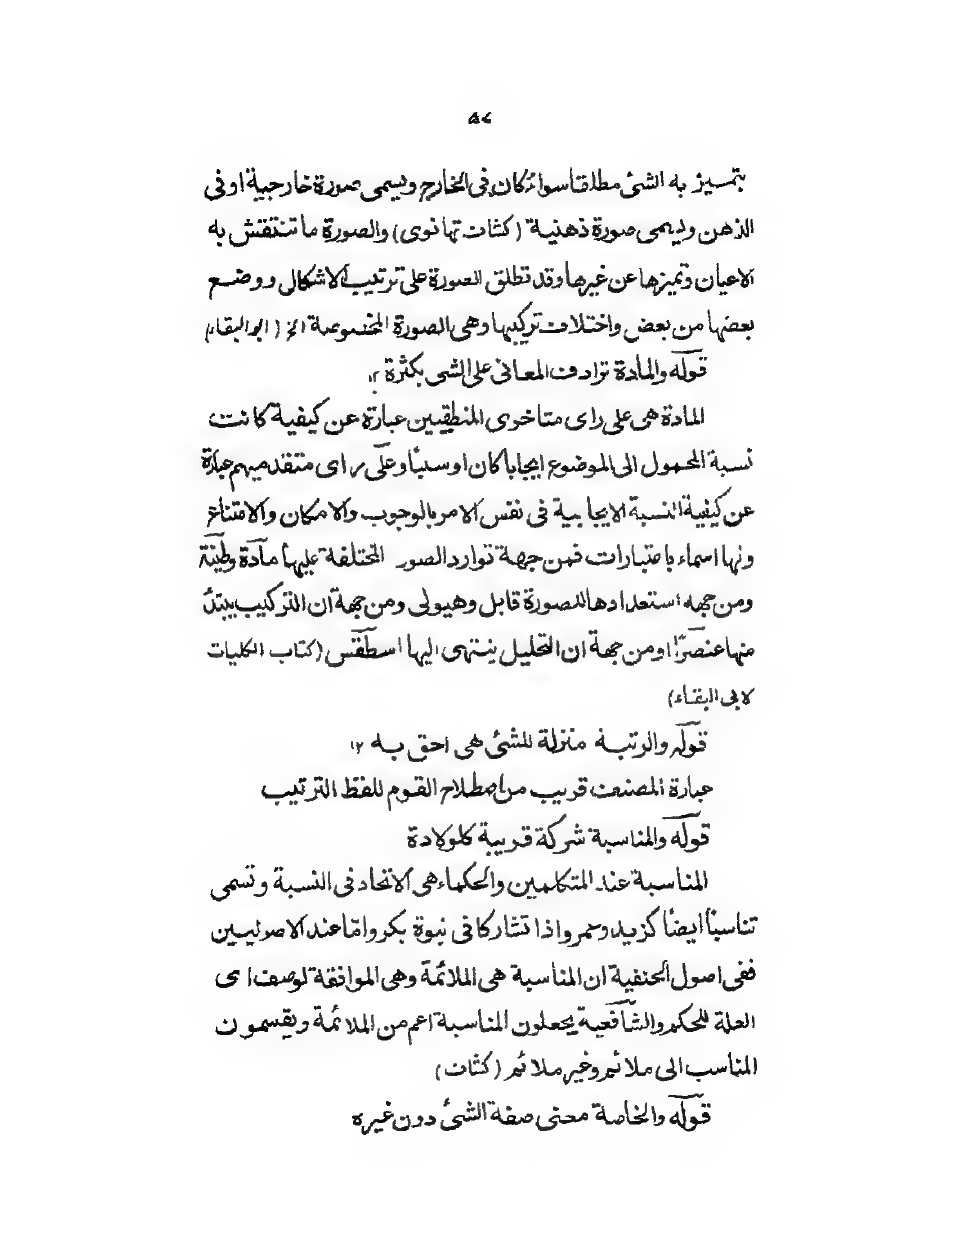 ۵۷
يتميز به الشئ مطلقا سواء كان فى الخارج ويسمى صورة خارجية او فى
الذهن ويسمى صورة ذهنية (كشاف تهانوى) والصورة ما تنتقش به
الاعيان وتميزها عن غيرها وقد تطلق الصورة على ترتيب الاشكال ووضع
بعضها من بعض واختلاف تركيبها وهى الصورة المخصوصة الخ (ابو البقاء)
قوله والمادة ترادف المعانى على الشى بكثرة ۱۲
المادة هى على راى متاخرى المنطقيين عبارة عن كيفية كانت
نسبة المحمول الى الموضوع ايجابا كان او سلبا وعلى راى متقدميهم عبارة
عن كيفية النسبة الايجابية فى نفس الامر بالوجوب والامكان والامتناع
ولها اسماء باعتبارات فمن جهة توارد الصور المختلفة عليها مادة وطينة
ومن جهه استعدادها للصورة قابل وهيولى ومن جهة ان التركيب يبتدأ
منها عنصرًا ومن جهة ان التحليل ينتهى اليها اسطقس (كتاب الكليات
لابى البقاء)
قوله والرتبة منزلة للشئ هى احق به ۱۲
عبارة المصنف قريب من اصطلاح القوم للفظ الترتيب
قوله والمناسبة شركة قريبة كالولادة
المناسبة عند المتكلمين والحكماء هى الاتحاد فى النسبة وتسمى
تناسبا ايضا كزيد وعمرو اذا تشاركا فى نبوة بكر واما عند الاصوليين
ففى اصول الحنفية ان المناسبة هى الملائمة وهى الموافقة لوصف اى
العلة للحكم والشافعية يجعلون المناسبة اعم من الملائمة ويقسمون
المناسب الى ملائم وغير ملائم (كشاف)
قوله والخاصة معنى صفة الشئ دون غيره